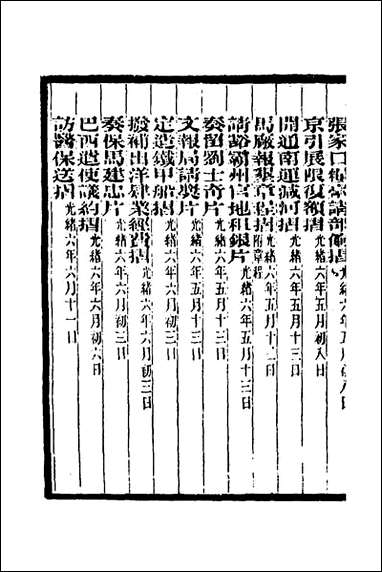 張家口 請部 摺 光緒六年五月初八日
京引展限復額摺 光緒六年五月初八日
開通南運減河摺 光緒六年五月十三日
馬廠報墾章程摺 附章程 光緒六年五月十三日
請豁霸州官地租銀片 光緒六年五月十三日
奏留劉士奇片 光緒六年五月十三日
文報局請獎片 光緒六年五月十三日
定造鐵甲船摺 光緒六年六月初三日
撥補出洋肄業經費摺 光緒六年六月初三日
奏保馬建忠片 光緒六年六月初三日
巴西遣使議約摺 光緒六年六月初六日
訪醫保送摺 光緒六年六月十一日